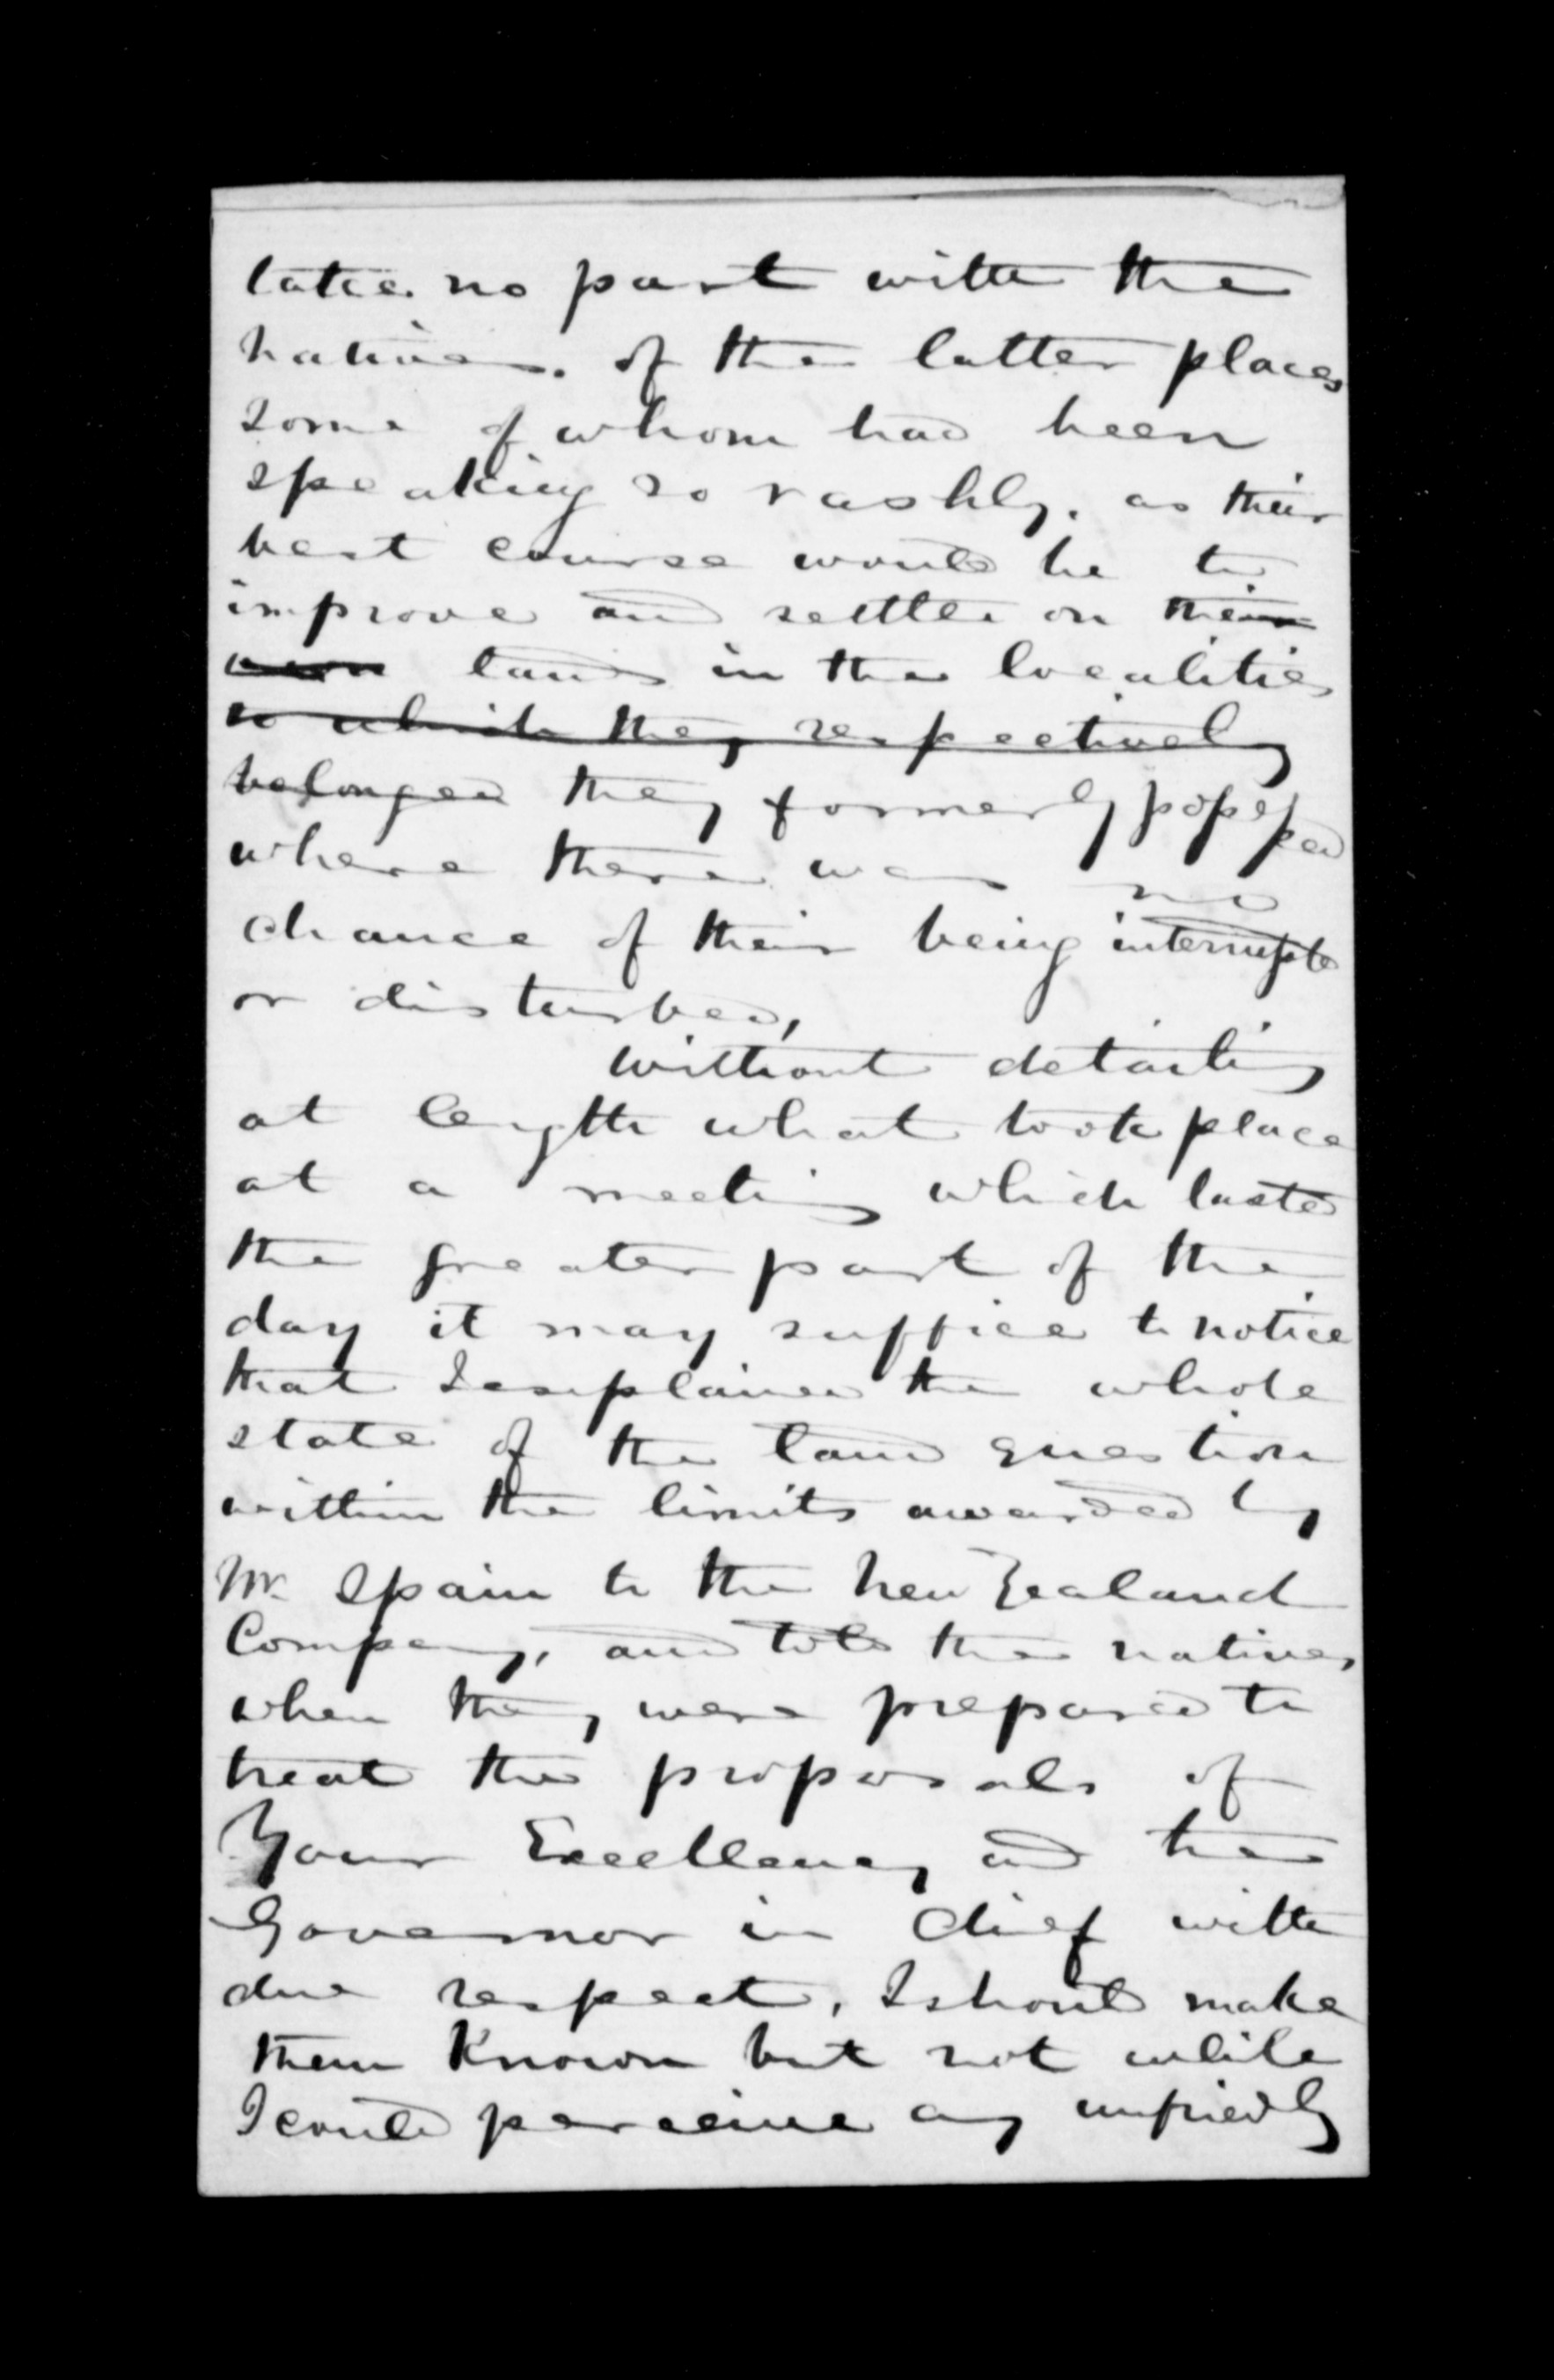 take no part with the
natives. of the latter places
some of whom had been
speaking so rashly. as their
best course would be to
improve and settle on their
own lands in the localities
to which they respectively
belonged they formerly possessed
where there was no
chance of their being interrupted
or disturbed,
without detailing
at length what took place
at a meeting which lasted
the greater part of the
day it may suffice to notice
that I explained the whole
state of the land question
within the limits awarded by
Mr. Spain to the New Zealand
Company, and told the natives
when they were prepared to
treat the proposals of
Your Excellency and the
Governor in Chief with
due respect, I should make
them known but not while
I could perceive any unfriendly